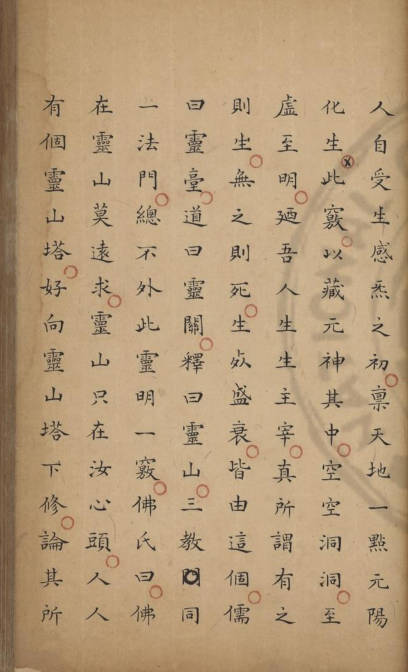 人自受生感炁之初稟天地一點元陽
化生此竅以藏元神其中空空洞洞至
虛至明廼吾人生生主宰真所謂有之
則生無之則死生死盛衰皆由這個儒
曰靈臺道曰靈關釋曰靈山三教同
一法門總不外此靈明一竅佛氏曰佛
在靈山莫遠求靈山只在汝心頭人人
有個靈山塔好向靈山塔下修論其所